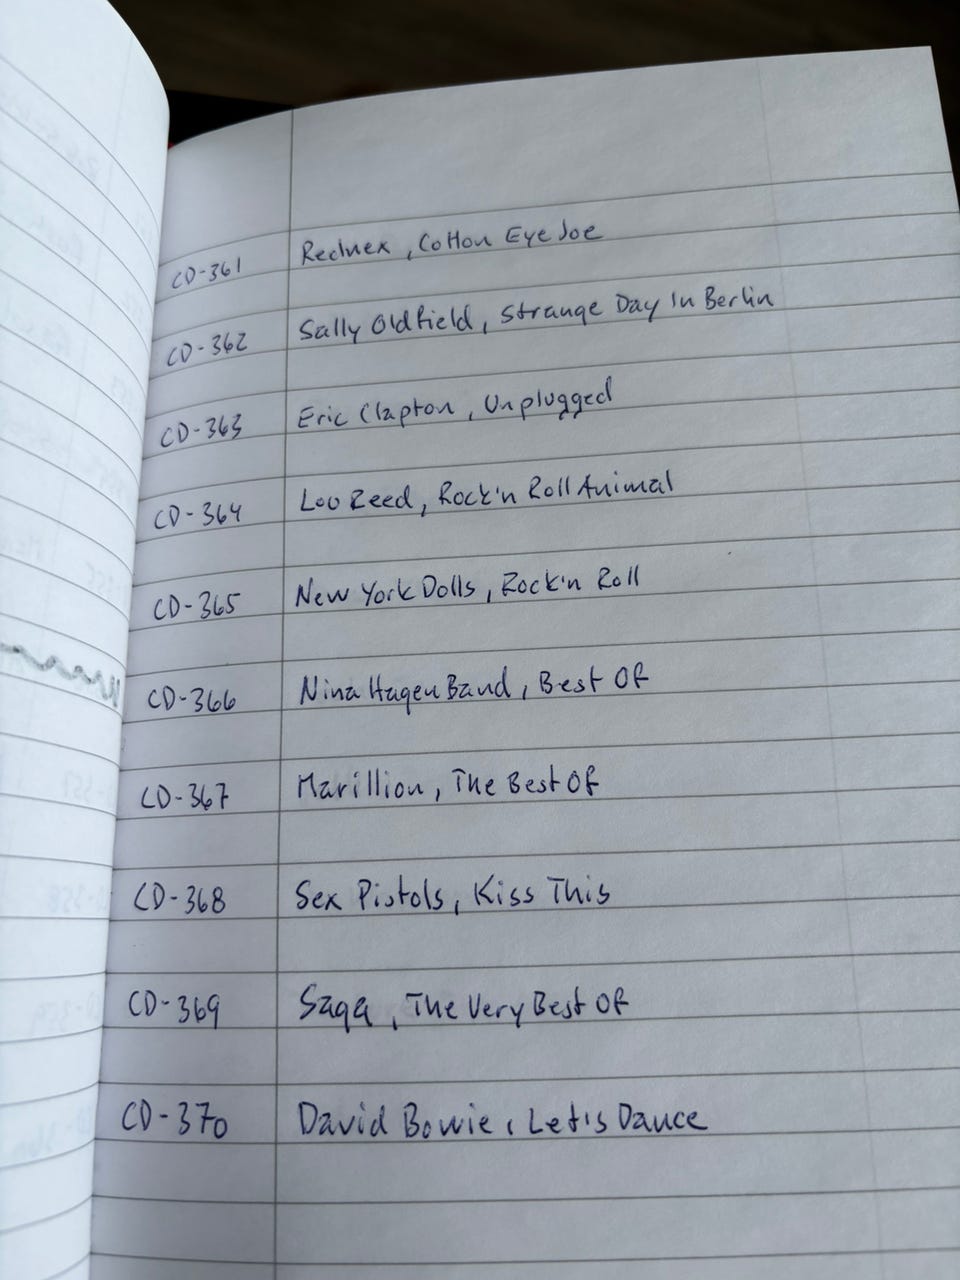 CD-361 Rednex, Cotton Eye Joe
CD-362 Sally Oldfield, Strange Day In Berlin
CD-363 Eric Clapton, Unplugged
CD-364 Lou Reed, Rock'n Roll Animal
CD-365 New York Dolls, Rock'n Roll
CD-366 Nina Hagen Band, Best Of
CD-367 Marillion, The Best Of
CD-368 Sex Pistols, Kiss This
CD-369 Saga, The Very Best Of
CD-370 David Bowie, Let's Dance